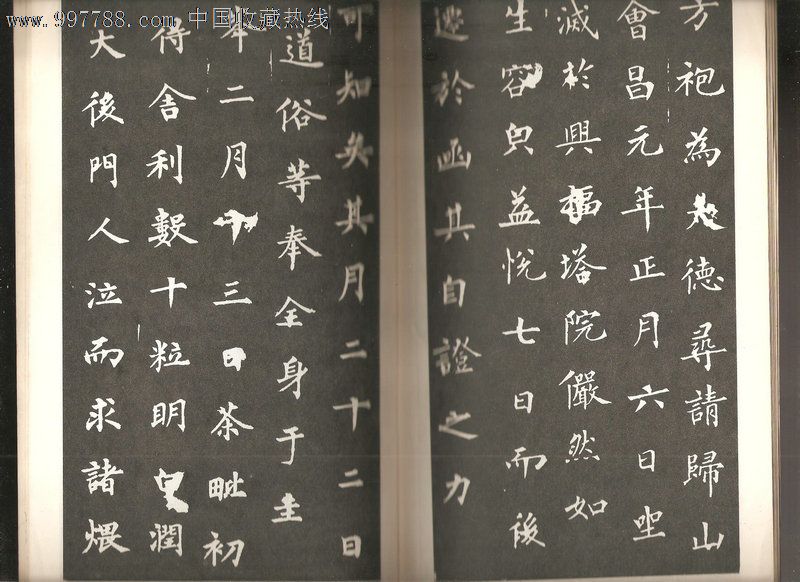 www.997788.com 中国收藏热线
方袍為大德尋請歸山
會昌元年正月六日坐
滅於興福塔院儼然如
生容皃益悅七日而後
遷於函其自證之力
可知矣其月二十二日
道俗等奉全身于圭
峯二月十三日茶毗初
得舍利數十粒明白潤
大後門人泣而求諸煨